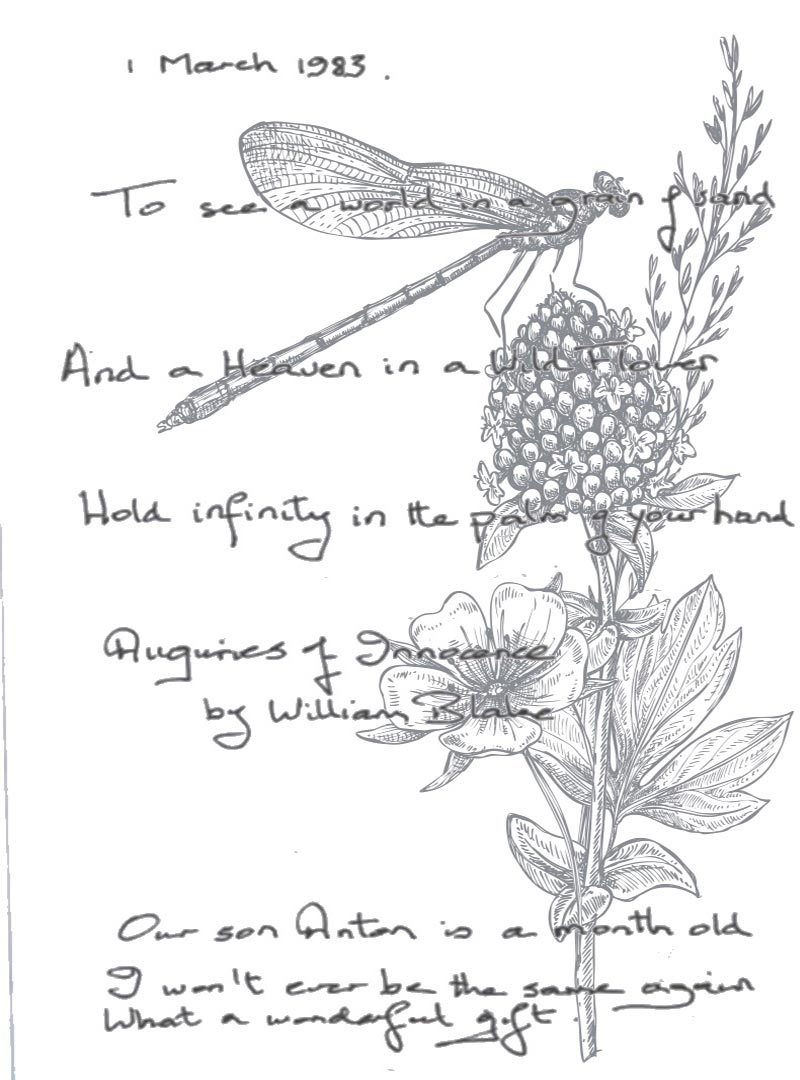 1 March 1983.
To see a world in a grain of sand
And a Heaven in a Wild Flower
Hold infinity in the palm of your hand
Auguries of Innocence
by William Blake
Our son Anton is a month old
I won't ever be the same again
What a wonderful gift.